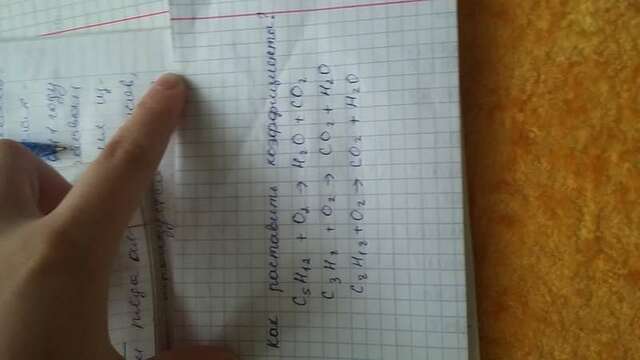 Как раставить коэффициенты?
C5H12 + O2 → H2O + CO2
C3H8 + O2 → CO2 + H2O
C8H18 + O2 → CO2 + H2O
году